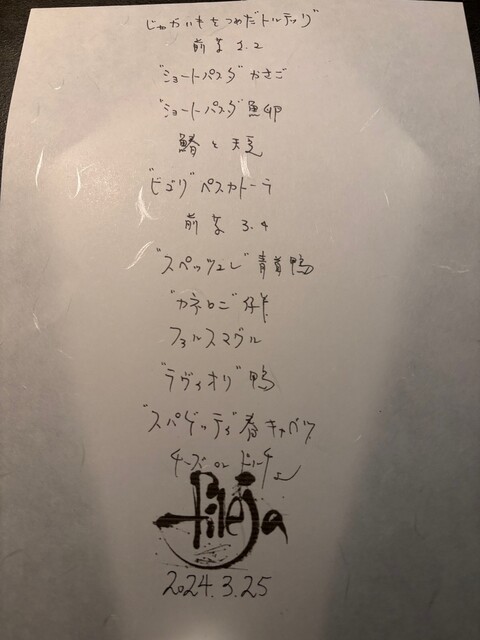 じゃがいもをつめたトルテッリ
前菜 1.2
"ショートパスタ" かさご
"ショートパスタ" 魚卵
鰆と天豆
"ビゴリ" ペスカトーラ
前菜 3.4
"スペッツェレ" 青首鴨
"カネロニ" 仔羊
フォルスマグル
"ラヴィオリ" 鴨
"スパゲッティ" 春キャベツ
チーズ or ドルチェ
Pileja
2024.3.25